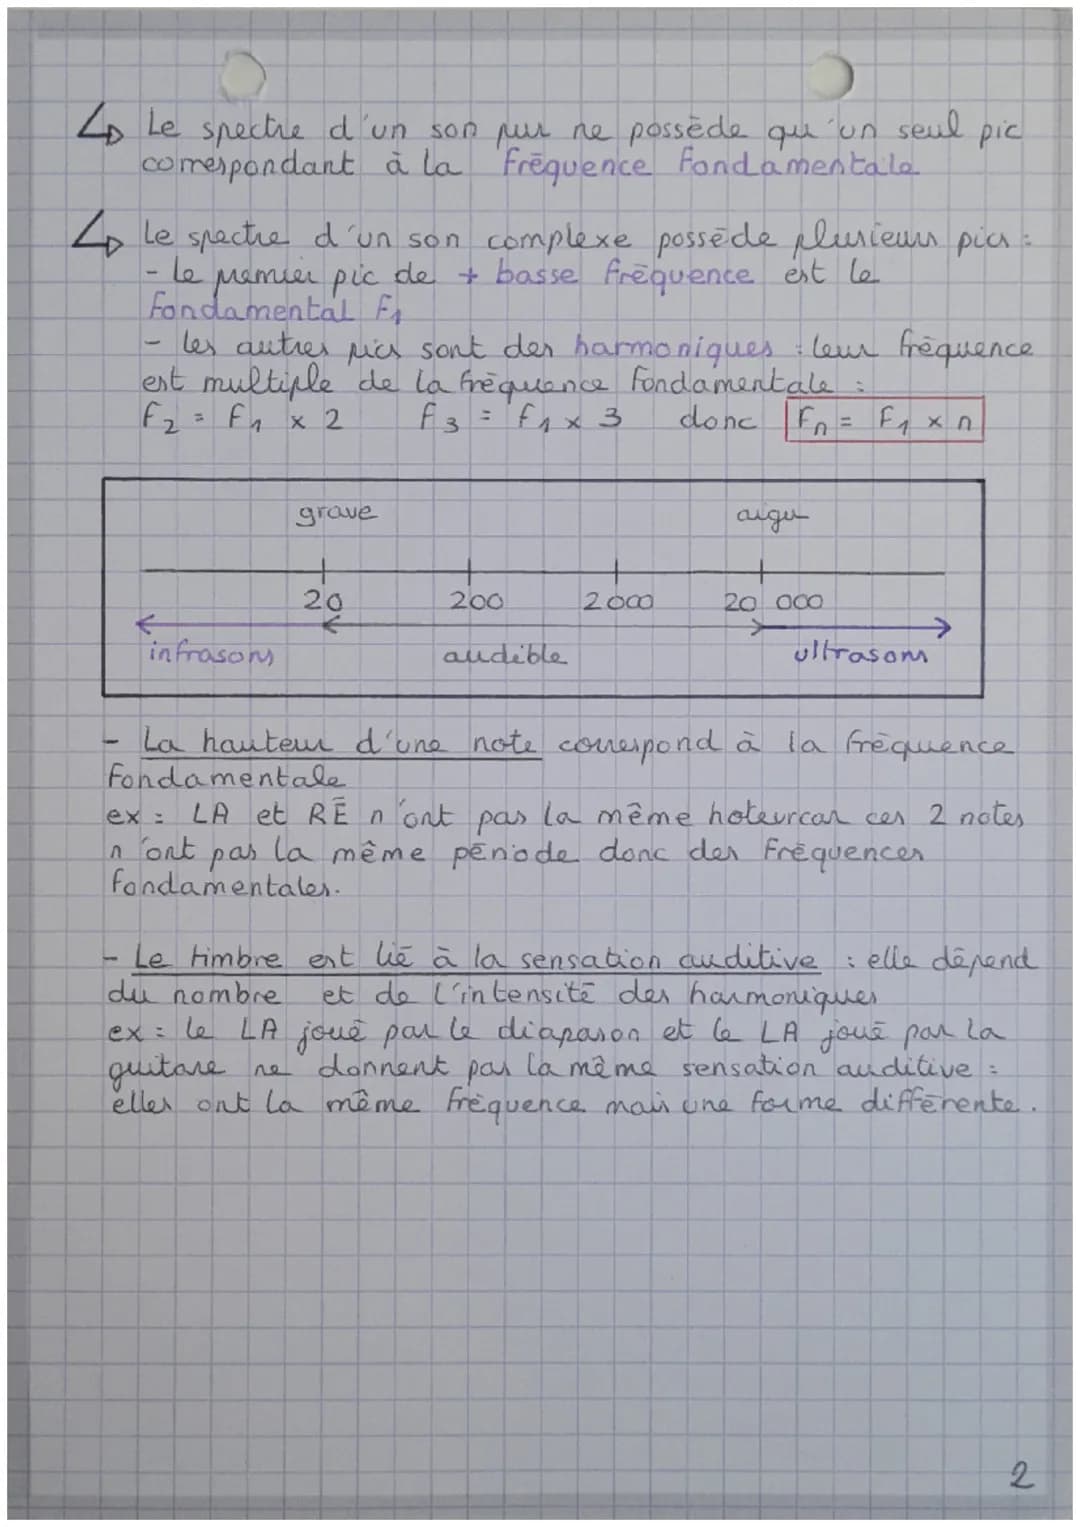 ↳ Le spectre d'un son pur ne possède qu'un seul pic
correspondant à la fréquence fondamentale
↳ Le spectre d'un son complexe possède plusieurs pics :
- Le premier pic de + basse fréquence est le
fondamental F₁
- les autres pics sont des harmoniques : leur fréquence
est multiple de la fréquence fondamentale :
F₂ = F₁ x 2 F₃ = F₁ x 3 donc Fₙ = F₁ x n
grave aigu
20 200 2000 20 000
infrasons audible ultrasons
- La hauteur d'une note correspond à la fréquence
fondamentale
ex : LA et RÉ n'ont pas la même hoteurcar ces 2 notes
n'ont pas la même période donc des fréquences
fondamentales.
- Le timbre est lié à la sensation auditive : elle dépend
du nombre et de l'intensité des harmoniques
ex : le LA joué par le diapason et le LA joué par la
guitare ne donnent pas la même sensation auditive :
elles ont la même fréquence mais une forme différente.
2